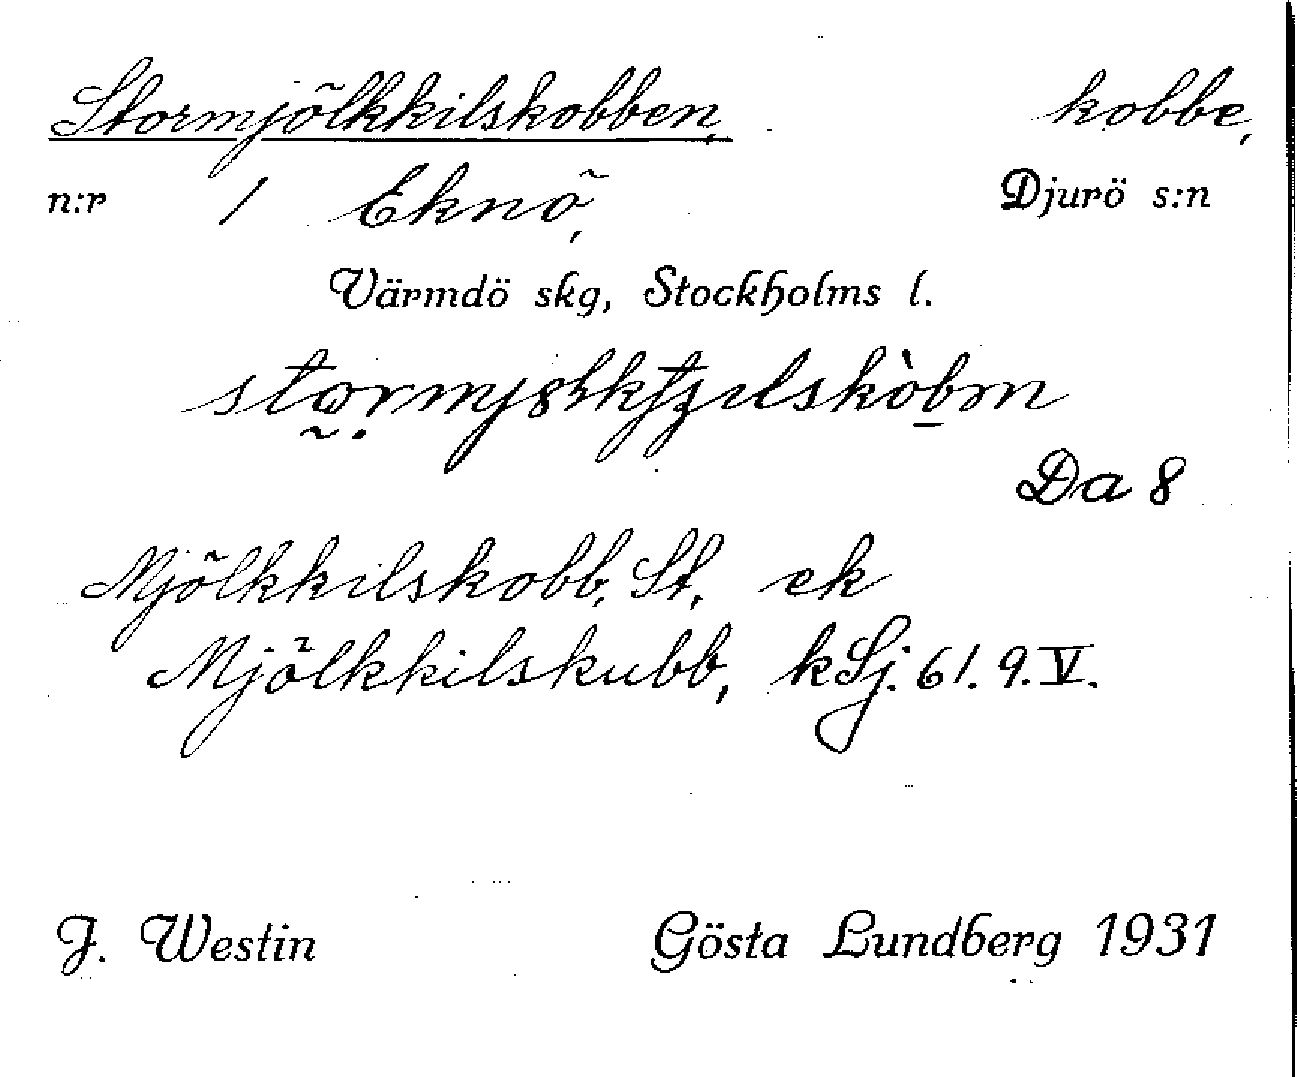 Stormjölkkilskobben, kobbe,
n:r 1 Eknö, Djurö s:n
Värmdö skg, Stockholms l.
Da 8
Mjölkkilskobb, St, ek
Mjölkkilskubb, kSj. 61. 9. V.
J. Westin Gösta Lundberg 1931